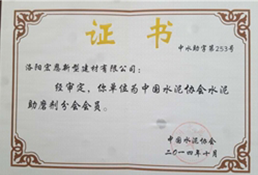 证书
中水助字第253号
洛阳宏恩新型建材有限公司:
经审定,你单位为中国水泥协会水泥
助磨剂分会会员。
中国水泥协会
二〇一四年十月